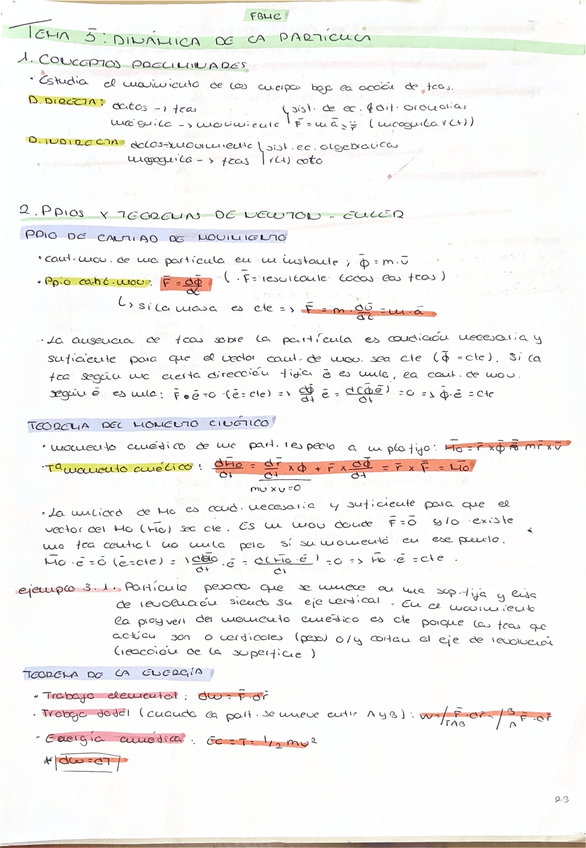 FBMC
TEMA 3: DINÁMICA DE LA PARTÍCULA
1. CONCEPTOS PRELIMINARES
· Estudia el movimiento de los cuerpos bajo la acción de fzas.
D. DIRECTA: datos → fzas } sist. de ec. dif. ordinarias
incógnita → movimiento } F̄ = m ā = r̈ (incógnita r(t))
D. INDIRECTA: datos → movimiento } sist. ec. algebraica
incógnita → fzas } r(t) dato
2. PPIOS Y TEOREMAS DE NEWTON - EULER
PPIO DE CANTIAD DE MOVIMIENTO
· cant. mov. de una partícula en un instante; φ̄ = m·ῡ
· Ppio cant. mov: F̄ = dφ̄/dt (·F̄ = resultante todas las fzas)
↳ si la masa es cte => F̄ = m·dῡ/dt = m·ā
· La ausencia de fzas sobre la partícula es condición necesaria y
suficiente para que el vector cant. de mov. sea cte (φ̄ = cte). Si la
fza según una cierta dirección fija ē es nula, la cant. de mov.
según ē es nula: F̄·ē = 0 (ē = cte) => dφ̄/dt ē = d(φ̄ē)/dt = 0 => φ̄·ē = cte
TEOREMA DEL MOMENTO CINÉTICO
· momento cinético de una part. respecto a un pto fijo: H̄o = r̄ × φ̄ = m r̄ × v̄
· Tª momento cinético: dH̄o/dt = dr̄/dt × φ̄ + r̄ × dφ̄/dt = r̄ × F̄ = M̄o
mv × v = 0
· La nulidad de Mo es cond. necesaria y suficiente para que el
vector del Mo (H̄o) sea cte. Es un mov donde F̄ = 0̄ y/o existe
una fza central no nula pero sí su momento en ese punto.
M̄o·ē = 0 (ē = cte) => dH̄o/dt · ē = d(H̄o·ē)/dt = 0 => H̄o·ē = cte.
ejemplo 3.1. Partícula pesada que se mueve en una sup. fija y lisa
de revolución siendo su eje vertical. En el movimiento
la proy vert del momento cinético es cte porque las fzas que
actúan son o verticales (peso) o/y cortan al eje de revolución
(reacción de la superficie)
TEOREMA DE LA ENERGÍA
· Trabajo elemental: dw = F̄·dr̄
· Trabajo total (cuando la part. se mueve entre A y B): w = ∫ΓAB F̄·dr̄ = ∫A^B F̄·dr̄
· Energía cinética: Ec = T = 1/2 mv²
* dw = dT
23